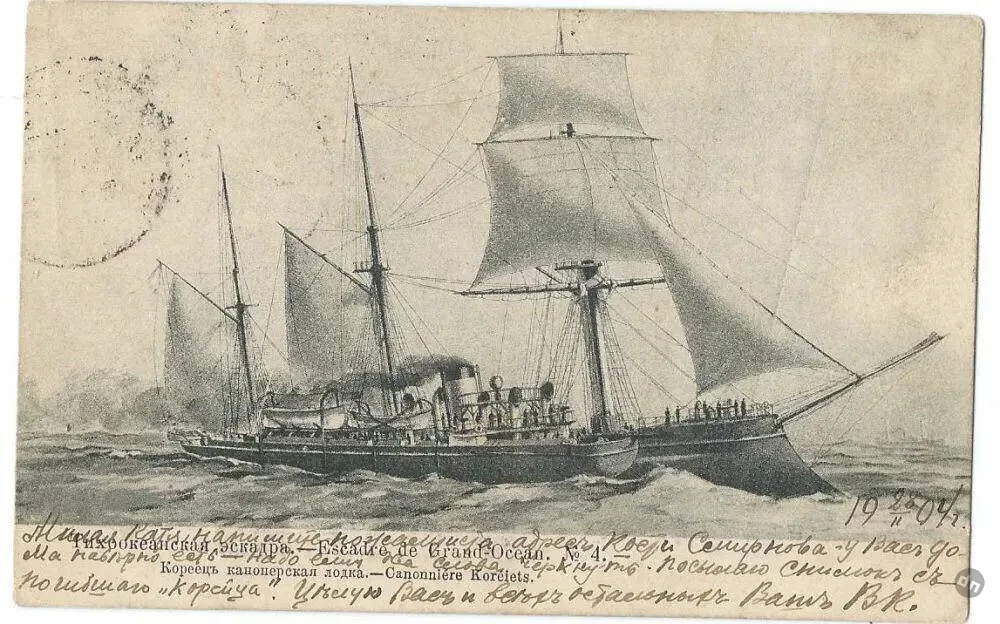 19 25/II 04 г.
Милая Катя напишите пожалуйста адрес Кости Смирнова - у Васъ до-
Тихоокеанская эскадра. — Escadre de Grand-Océan. № 4.
ма навѣрно есть - надо ему два слова черкнуть. Посылаю снимокъ съ
Кореецъ канонерская лодка. — Canonnière Koréiets.
погибшаго „Корейца". Цѣлую Васъ и всѣхъ остальныхъ Вашъ ВК.